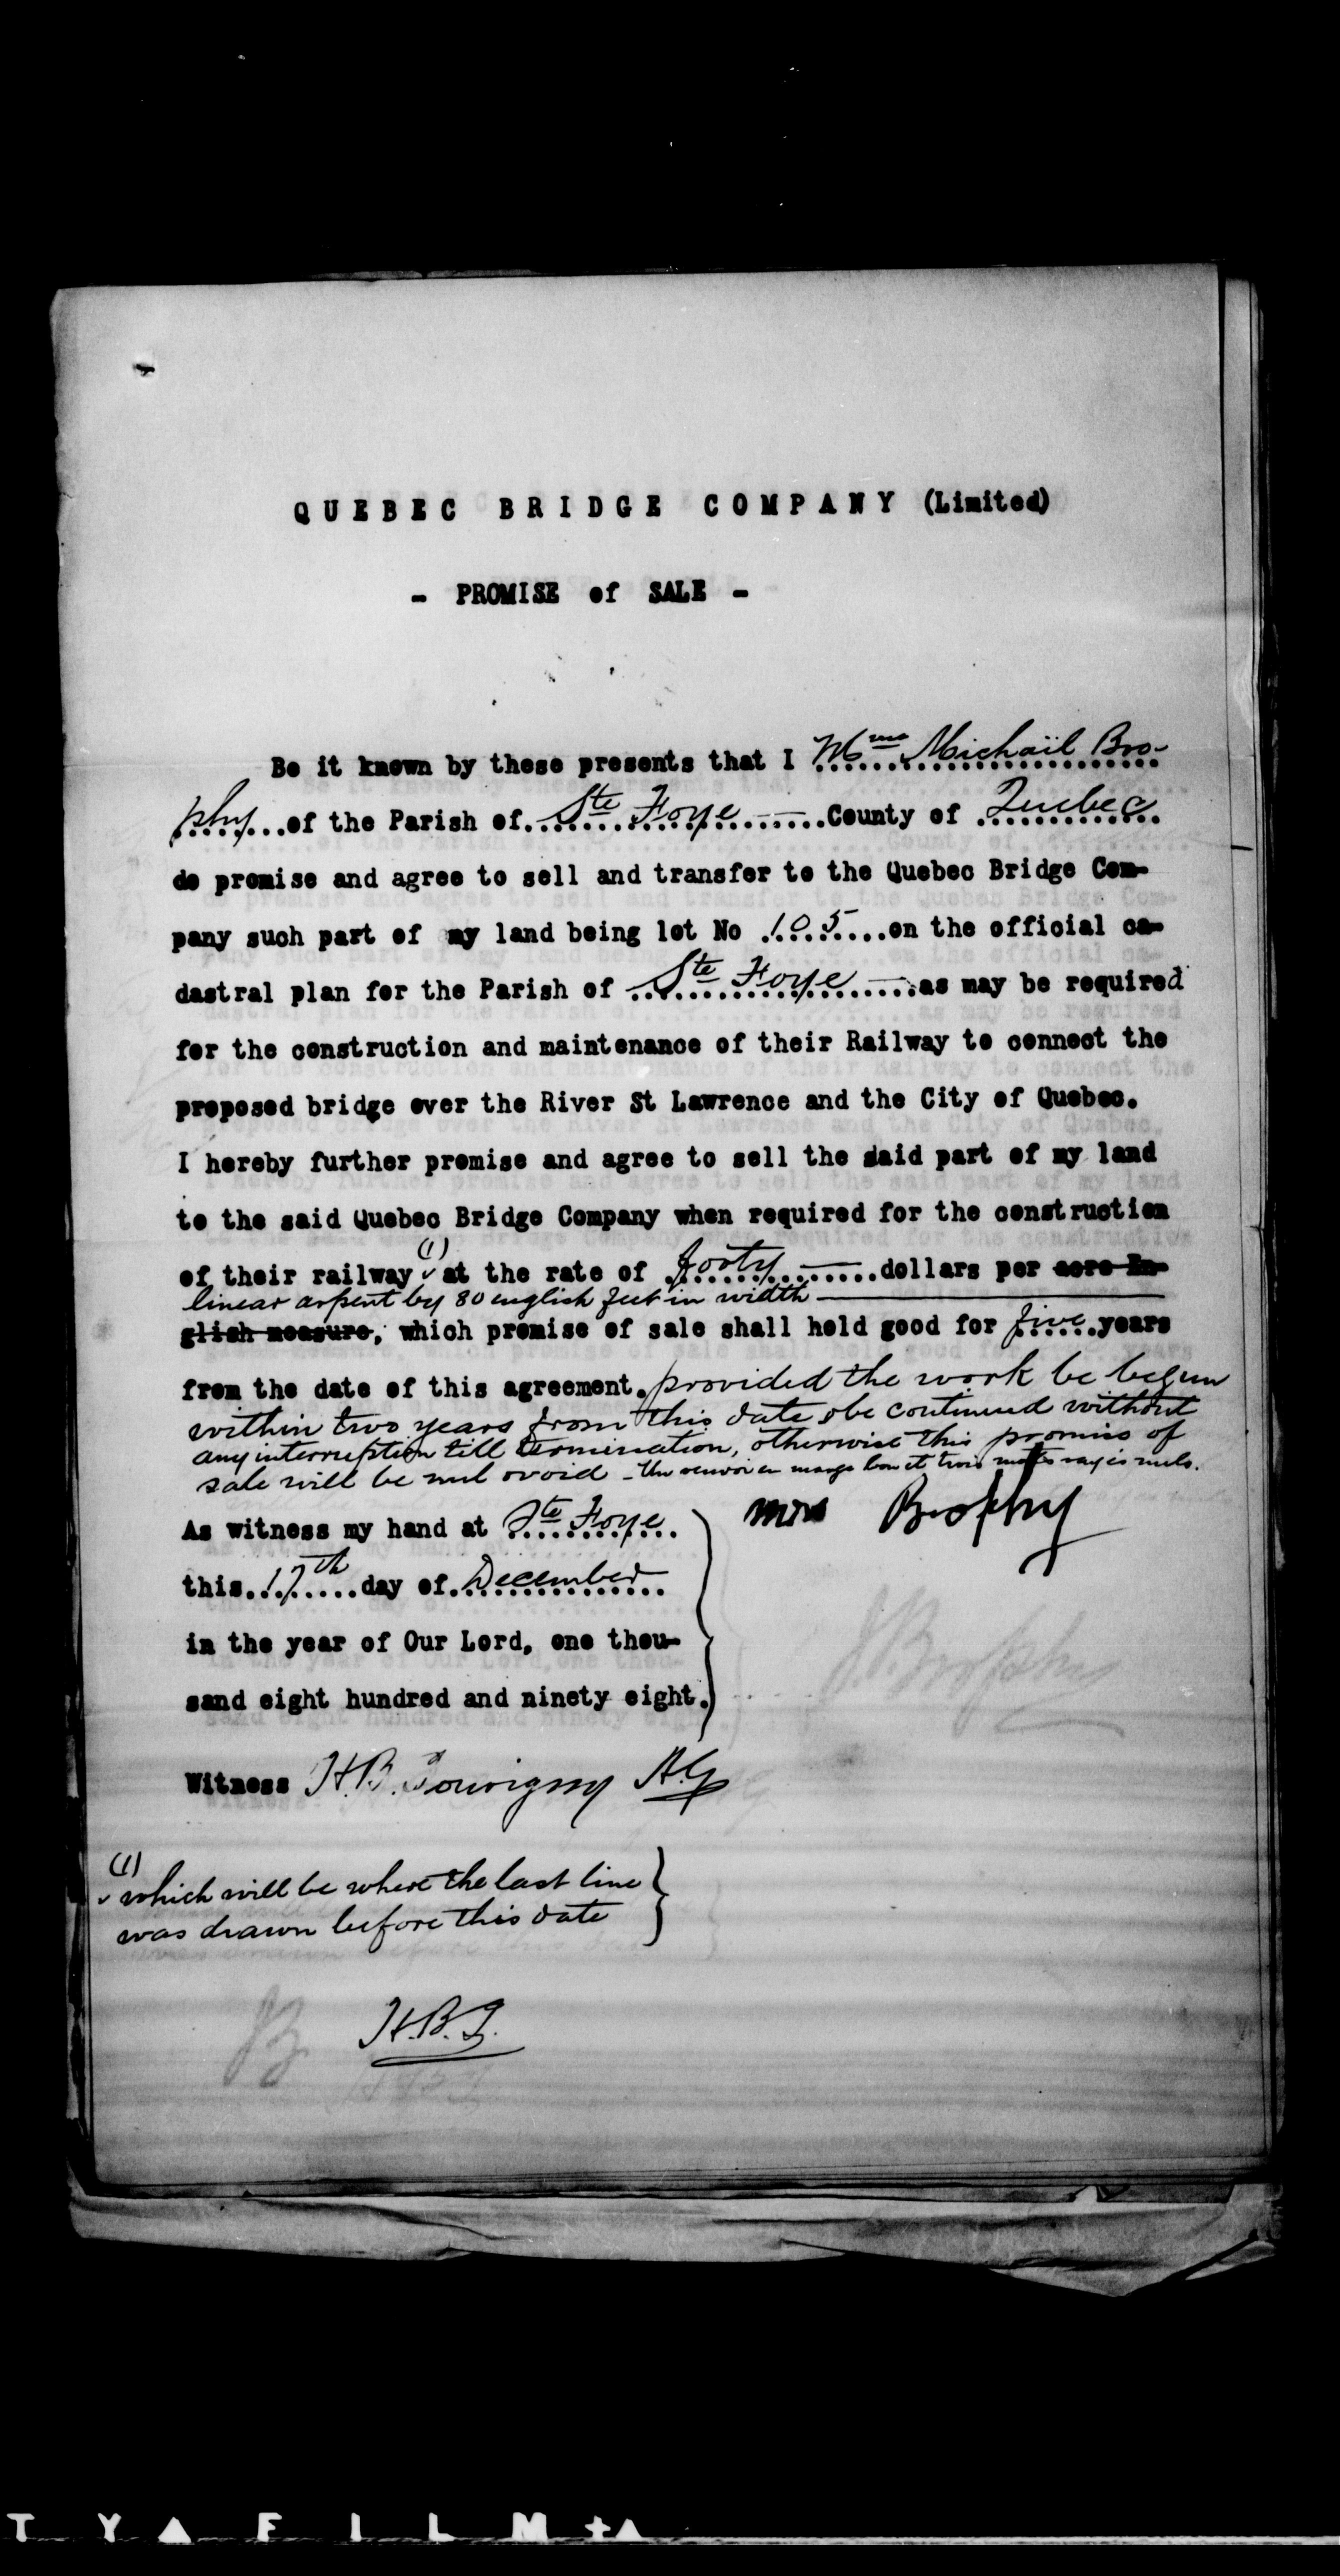 QUEBEC BRIDGE COMPANY (Limited)
- PROMISE of SALE -
Be it known by these presents that I Mme Michaïl Bro-
phy of the Parish of Ste Foye County of Quebec
do promise and agree to sell and transfer to the Quebec Bridge Com-
pany such part of my land being lot No 105 on the official ca-
dastral plan for the Parish of Ste Foye as may be required
for the construction and maintenance of their Railway to connect the
proposed bridge over the River St Lawrence and the City of Quebec.
I hereby further promise and agree to sell the said part of my land
to the said Quebec Bridge Company when required for the construction
(1)
of their railway at the rate of forty dollars per acre En-
linear arpent by 80 english feet in width
glish measure, which promise of sale shall hold good for five years
from the date of this agreement. provided the work be begun
within two years from this date & be continued without
any interruption till termination, otherwise this promise of
sale will be nul & void - Un renvoi en marge bon et trois mots rayés nuls.
As witness my hand at Ste Foye
Mrs Brophy
this 17th day of December
in the year of Our Lord, one thou-
J Brophy
sand eight hundred and ninety eight.
Witness H.B. Tourigny A.G
(1)
which will be where the last line
was drawn before this date
JB H.B.T.
TY FILM